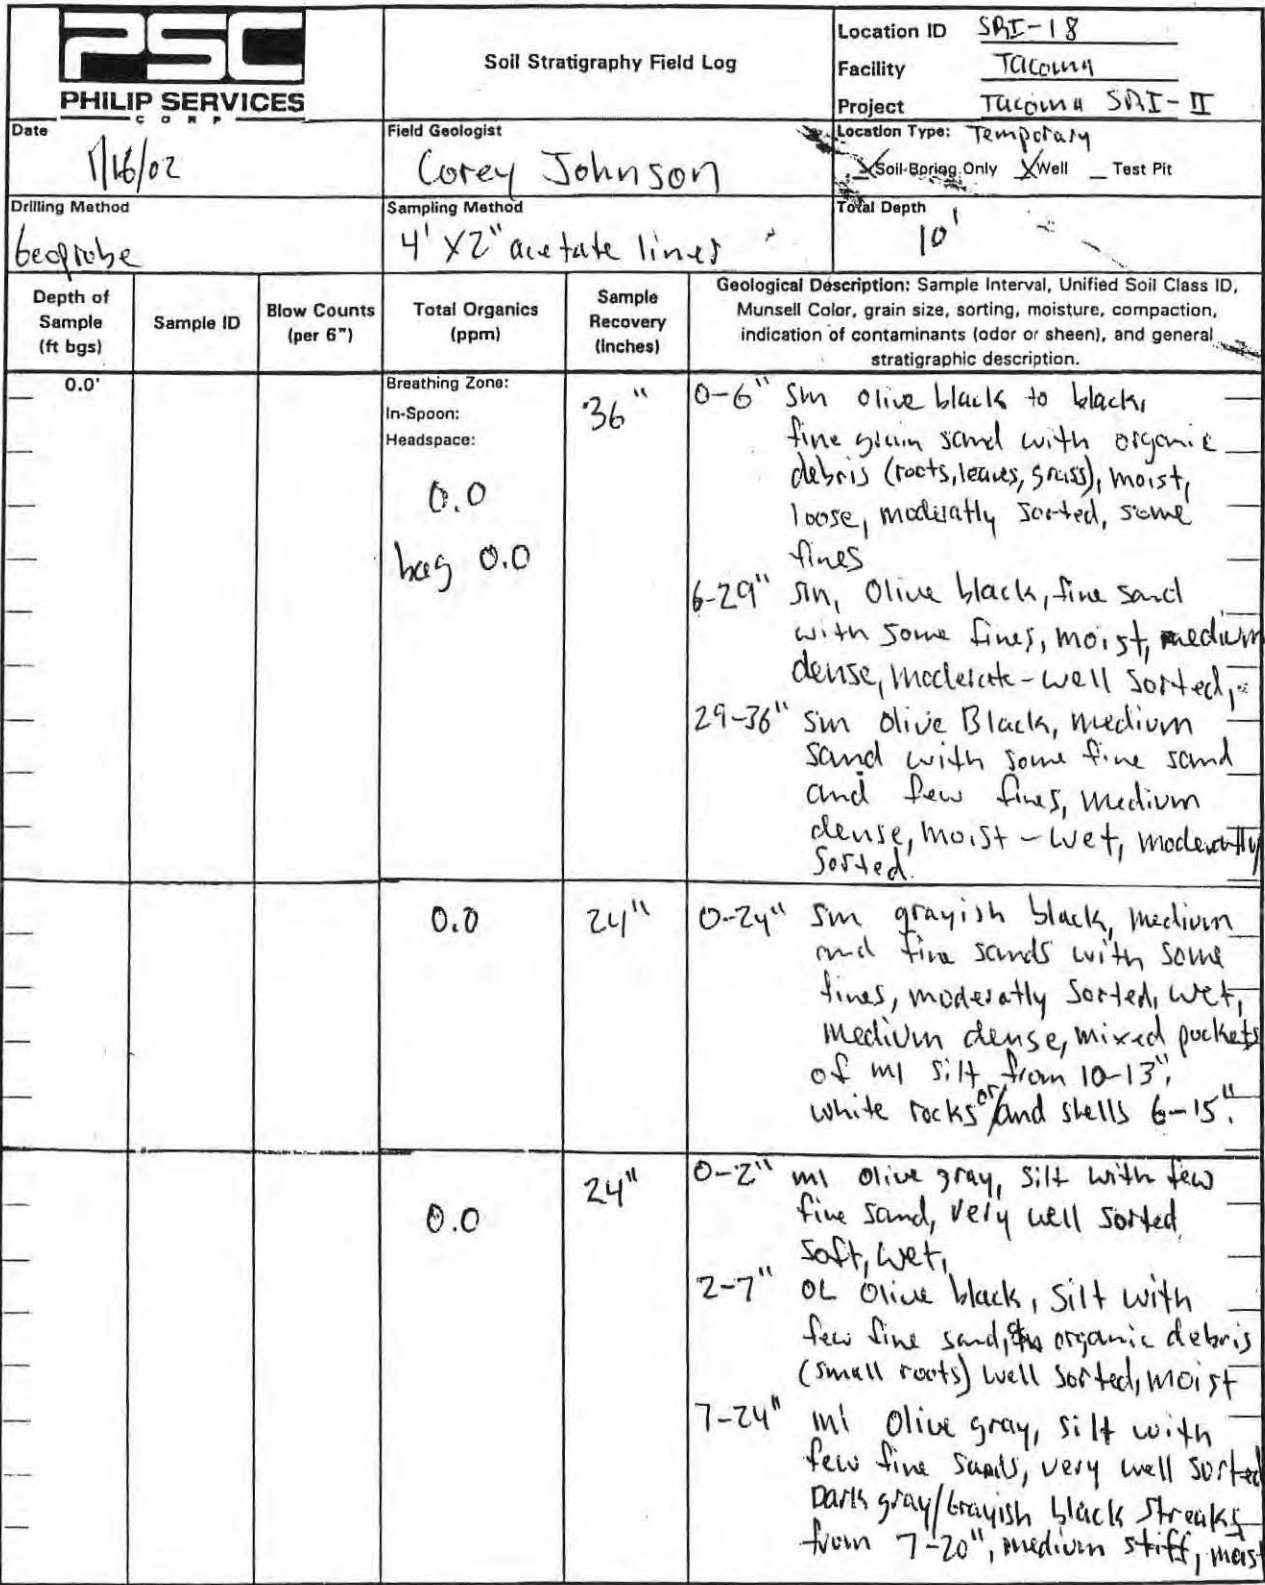 PSC
PHILIP SERVICES
CORP
Soil Stratigraphy Field Log
Location ID SRI-18
Facility Tacoma
Project Tacoma SRI-II
Date
1/16/02
Field Geologist
Corey Johnson
Location Type: Temporary
X Soil-Boring Only X Well _ Test Pit
Drilling Method
Geoprobe
Sampling Method
4' X 2" acetate liner
Total Depth
10'
Depth of
Sample
(ft bgs)
Sample ID
Blow Counts
(per 6")
Total Organics
(ppm)
Sample
Recovery
(inches)
Geological Description: Sample Interval, Unified Soil Class ID,
Munsell Color, grain size, sorting, moisture, compaction,
indication of contaminants (odor or sheen), and general
stratigraphic description.
0.0'
Breathing Zone:
In-Spoon:
Headspace:
0.0
bag 0.0
36"
0-6" Sm olive black to black,
fine grain sand with organic
debris (roots, leaves, grass), moist,
loose, moderatly sorted, some
fines
6-29" Sm, Olive black, fine sand
with some fines, moist, medium
dense, moderate-well sorted,
29-36" Sm olive Black, medium
sand with some fine sand
and few fines, medium
dense, moist-wet, moderatly
sorted.
0.0
24"
0-24" Sm grayish black, medium
and fine sands with some
fines, moderatly sorted, wet,
medium dense, mixed pockets
of ml silt from 10-13",
white rocks or/and shells 6-15".
0.0
24"
0-2" ml olive gray, silt with few
fine sand, very well sorted
soft, wet,
2-7" OL Olive black, silt with
few fine sand, organic debris
(small roots) well sorted, moist
7-24" ml olive gray, silt with
few fine sands, very well sorted
Dark gray/Grayish black streaks
from 7-20", medium stiff, moist